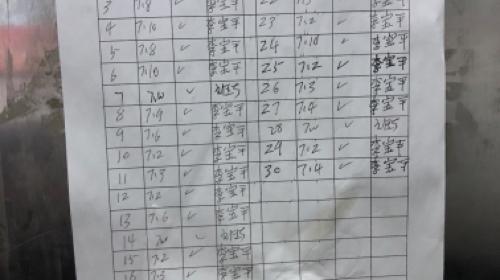 3 7.8 ✓ 李宝平
4 7.10 ✓ 李宝平 23 7.2 ✓ 李宝平
5 7.8 ✓ 李宝平 24 7.10 ✓ 李宝平
6 7.10 ✓ 李宝平 25 7.2 ✓ 李宝平
7 ✓ 26 7.3 ✓ 李宝平
8 7.9 ✓ 李宝平 27 7.4 ✓ 李宝平
9 7.6 ✓ 李宝平 28 ✓
10 7.2 ✓ 李宝平 29 7.2 ✓ 李宝平
11 7.3 ✓ 李宝平 30 7.4 ✓ 李宝平
12 7.2 ✓ 李宝平
13 7.6 ✓ 李宝平
14 ✓
15 7.2 ✓ 李宝平
16 7.3 ✓ 李宝平